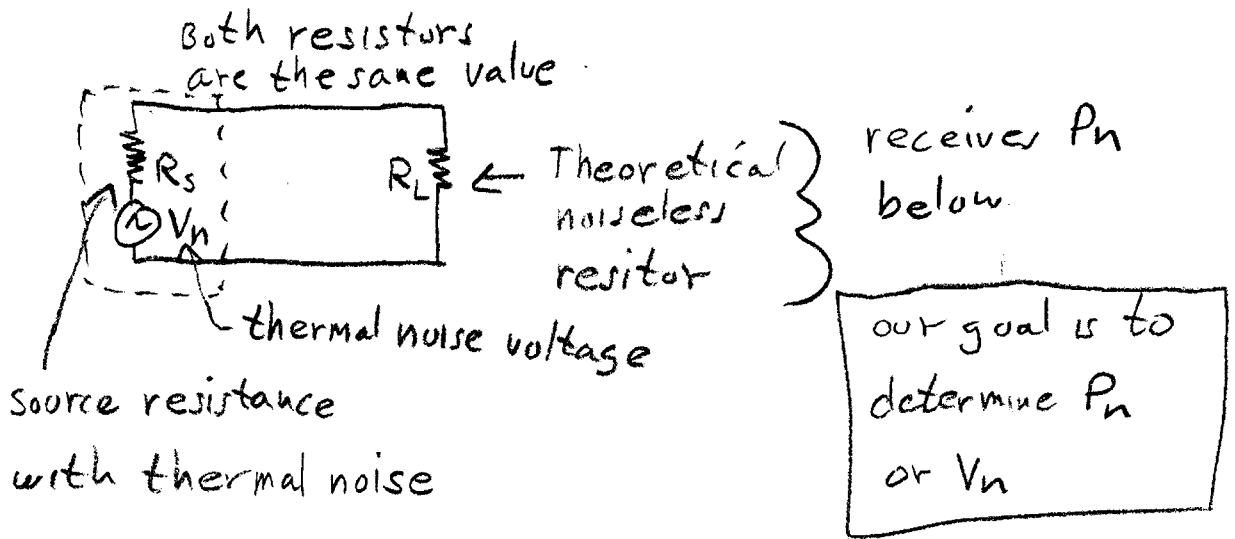 Both resistors
are the same value
Rs
Vn
RL
← Theoretical
noiseless
resitor
receives Pn
below
thermal noise voltage
source resistance
with thermal noise
our goal is to
determine Pn
or Vn